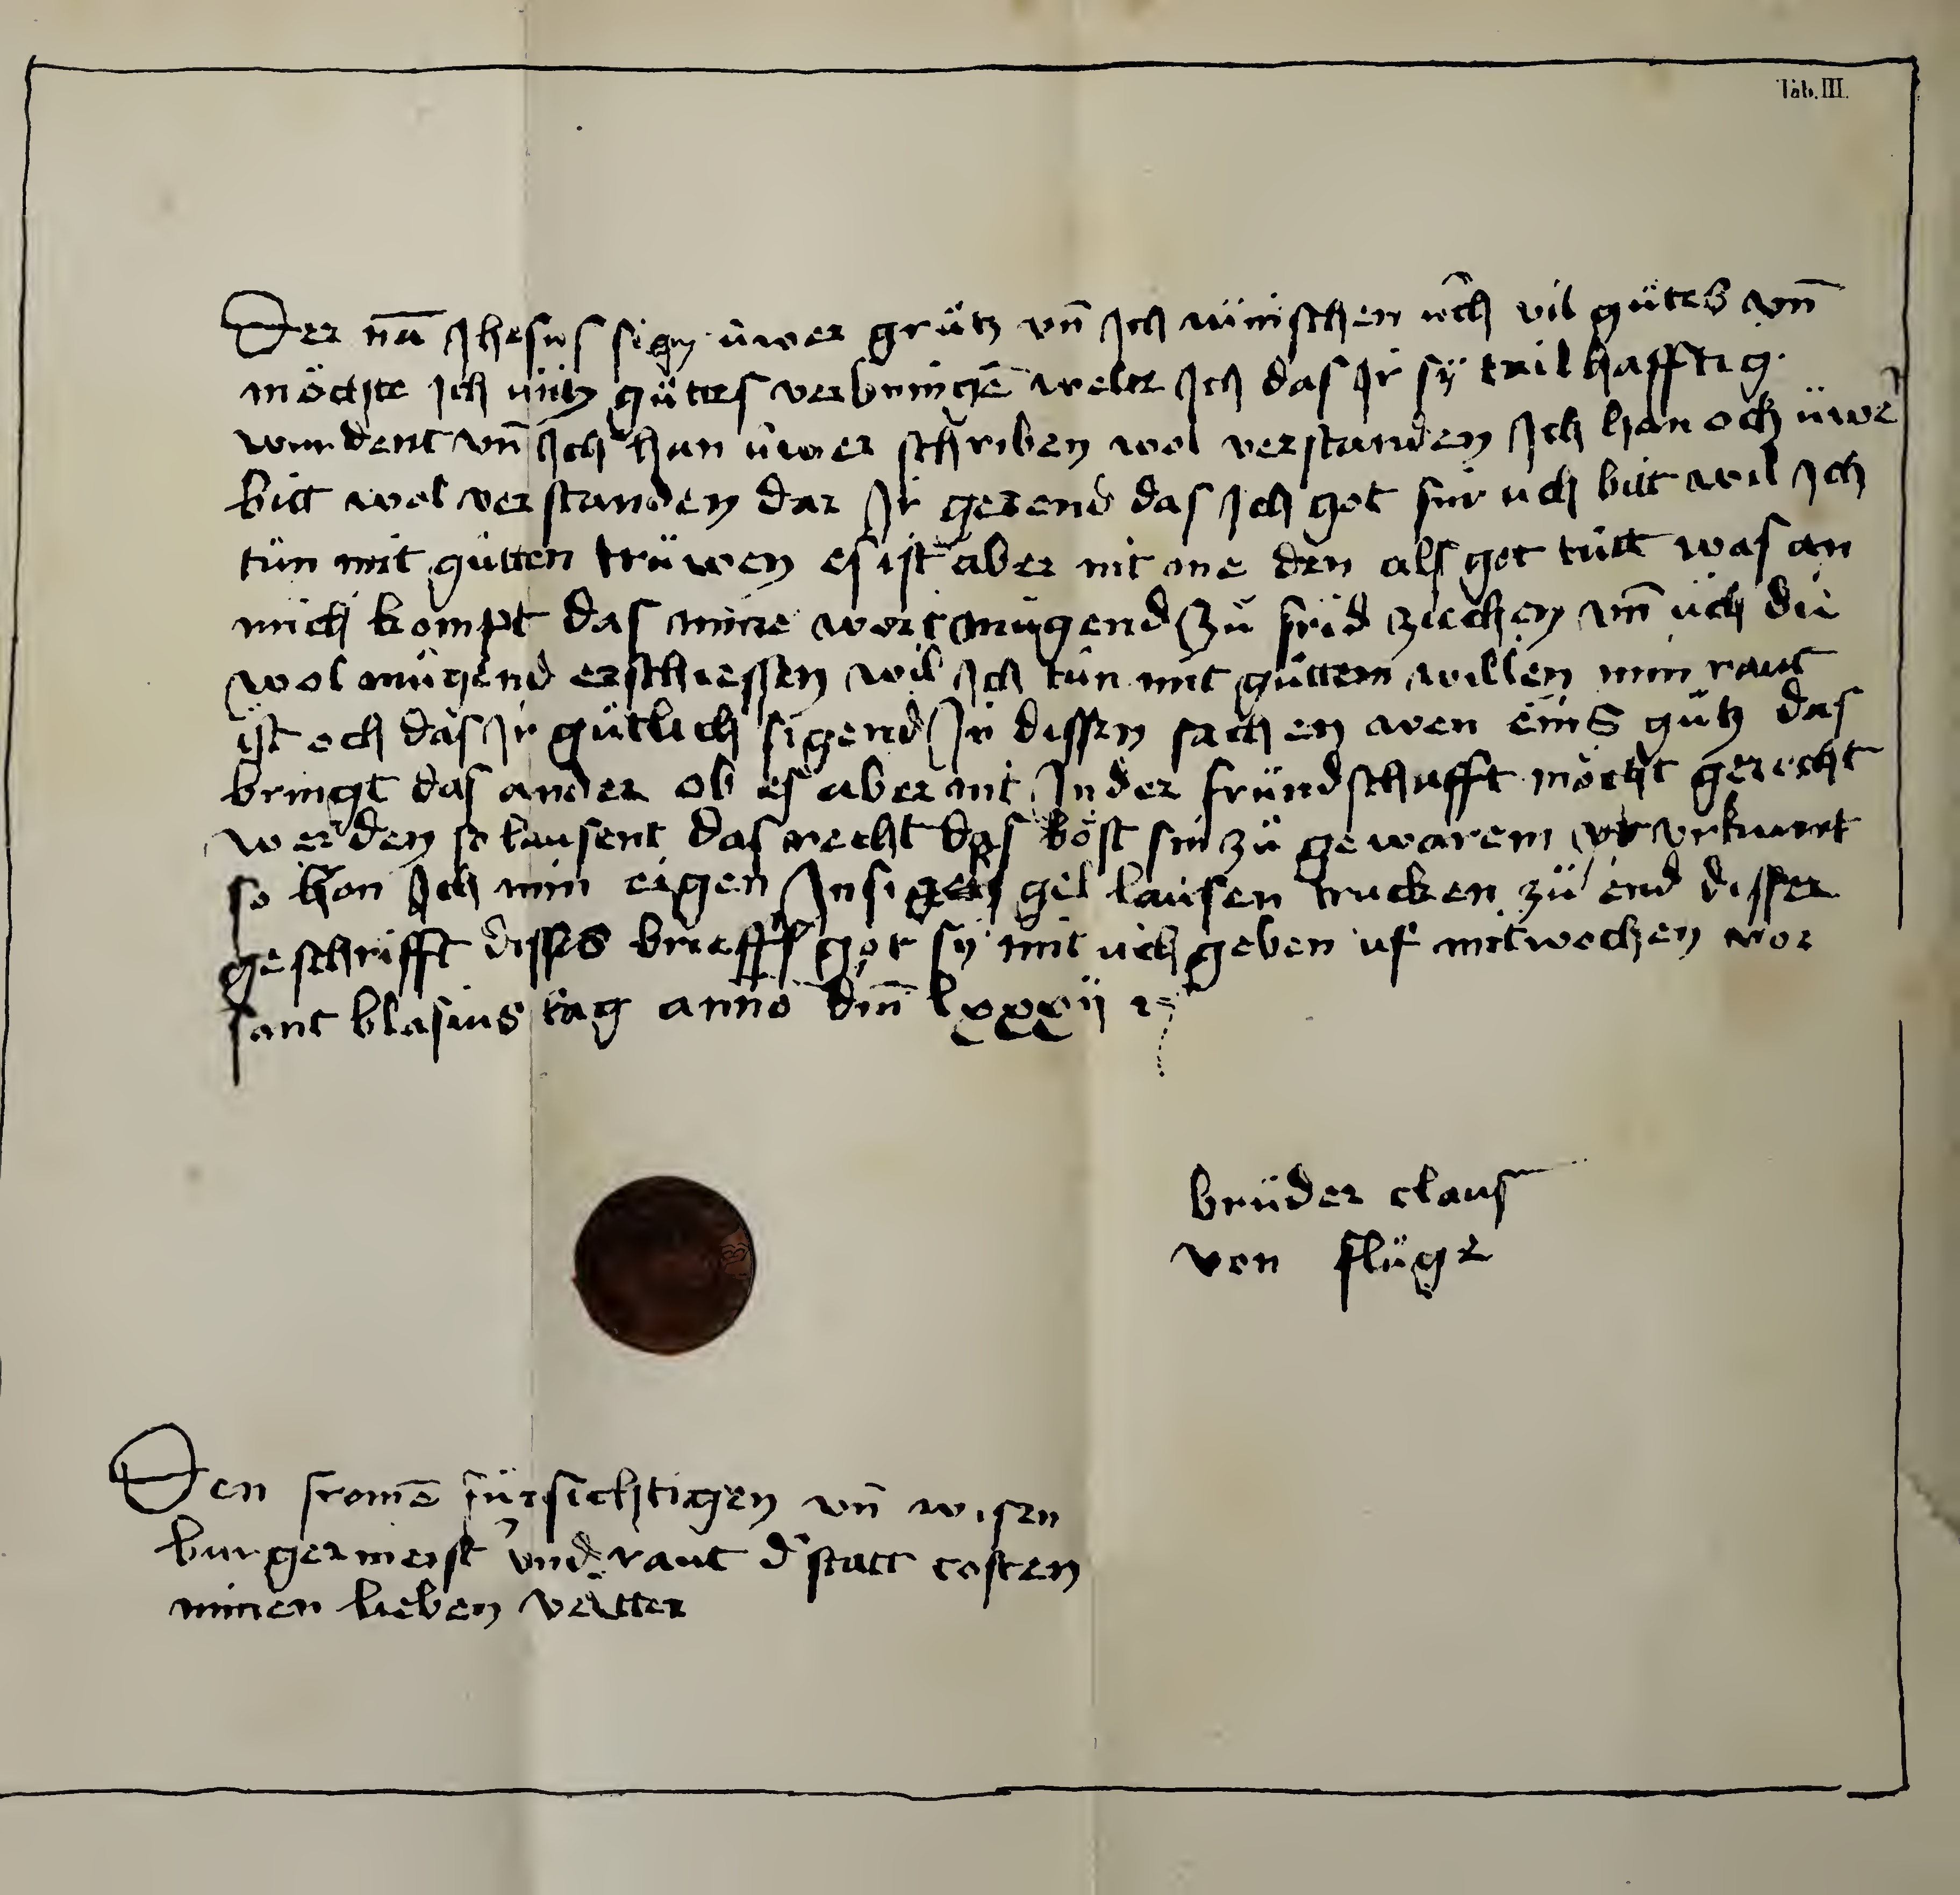 Tab. III.
Der nā Jhesus sigy üwer grütz vn̄ Jch wünschen üch vil gütes vn̄
möchte Jch nütz güttes verbringē welte Jch das Jr sÿ teilhafftig
wurdent vn̄ Jch han üwer schriben wol verstanden Jch han och üwer
bitt wol verstanden dar Jr gerend das Jch got für üch bitt wil Jch
tün mit gütten trüwen es ist aber nit me den als got tütt was an
mich kompt das mine wort mügend zü frid ziechen vn̄ üch die
wol mügend erschiessen wil Jch tün mit güttem willen min raut
ist och das Jr gütlich sigend Jn dissen sachen wen eins gütz das
bringt das ander ob es aber nit Jn der fründschafft möcht gericht
werden so lausent das recht das böst sin zü gewarem vrkunnt
so hon Jch min eigen Jnsigel lausen trucken zü end disser
geschrifft disses brieffs got sÿ mit üch geben uf mitwochen vor
sant blasius tag anno dm̄ lxxxij
brüder claus
von flüge
Den fromē fürsichtigen vn̄ wisen
burgermeist' vnd raut d' statt costen
minen lieben vetter